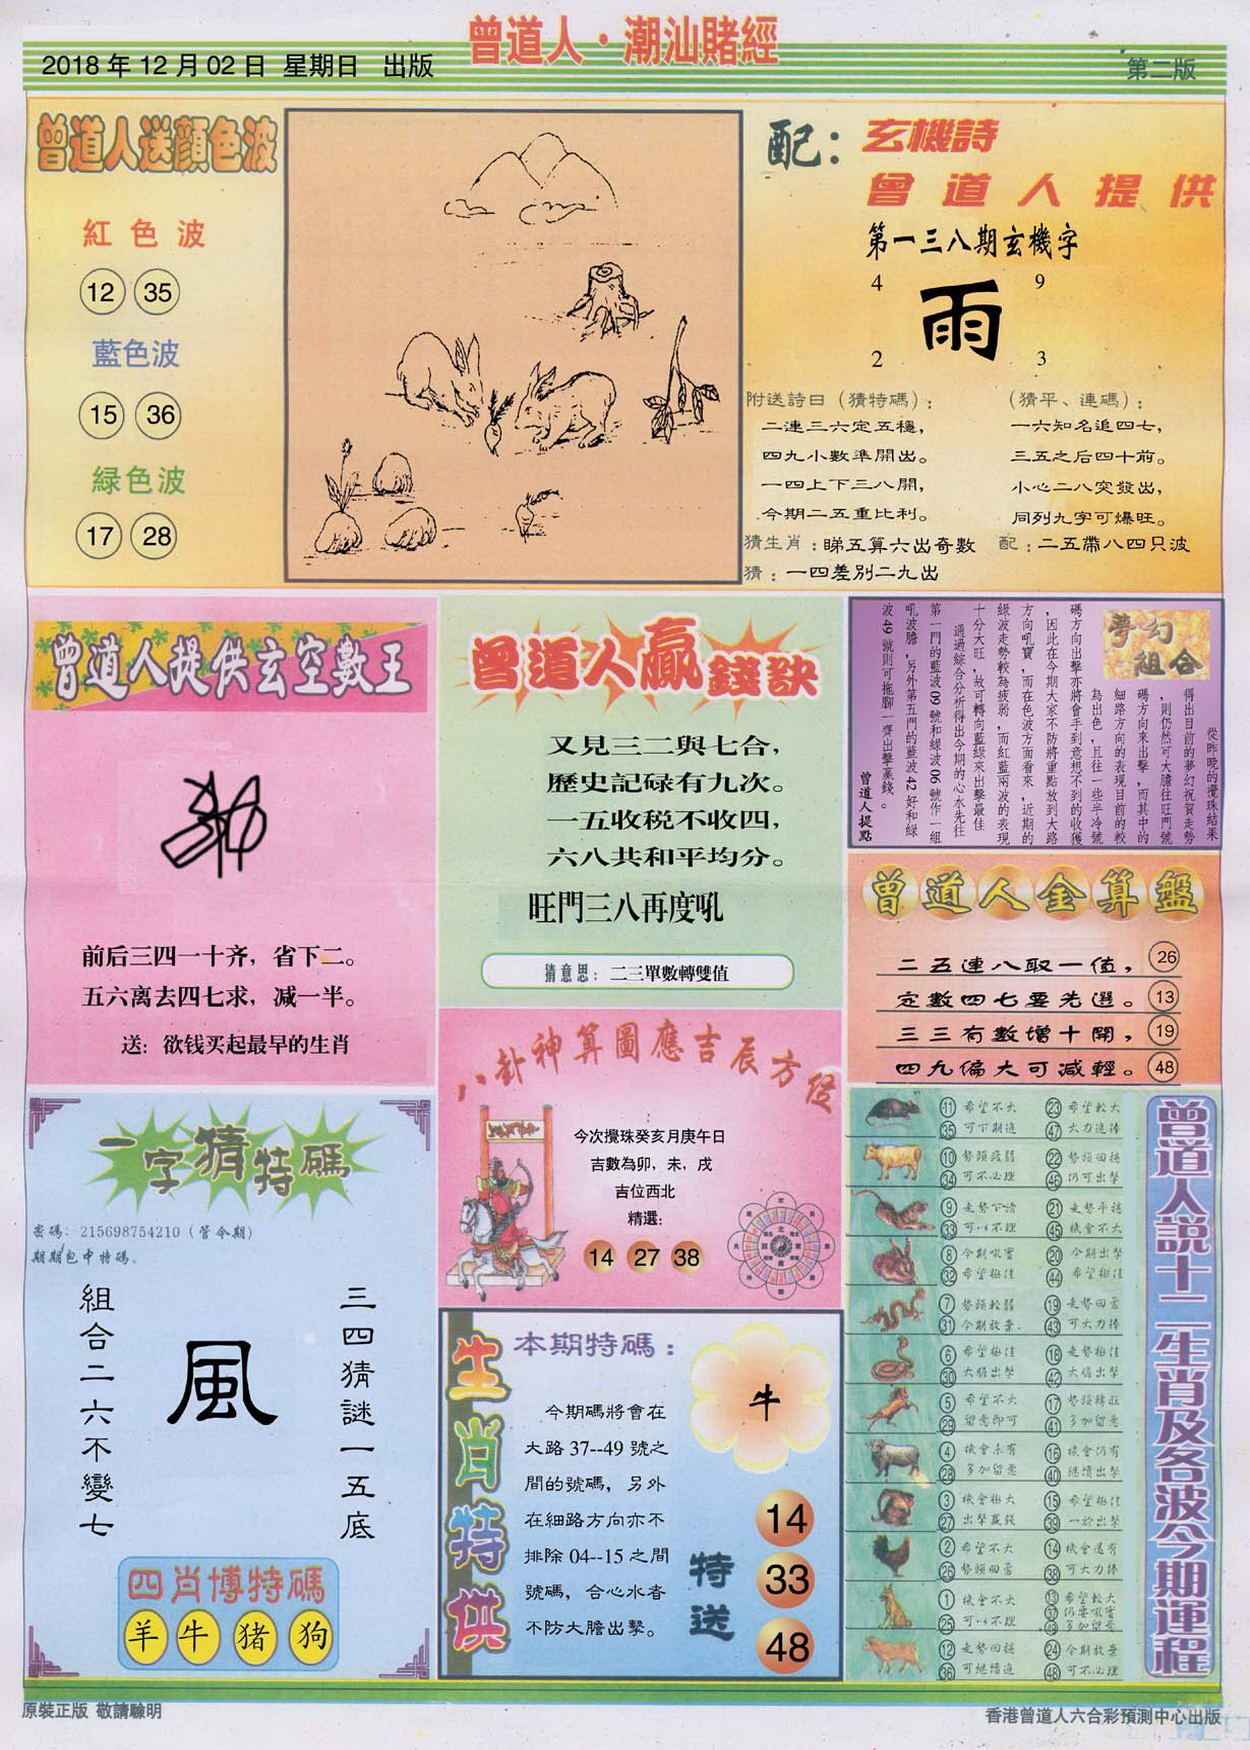 曾道人·潮汕賭經
2018年12月02日 星期日 出版
第二版
曾道人送顔色波
紅色波
12 35
藍色波
15 36
緑色波
17 28
配：玄機詩
曾道人提供
第一三八期玄機字
4 9
雨
2 3
附送詩日（猜特碼）：
二連三六定五穩，
四九小數準開出。
一四上下三八開，
今期二五重比利。
（猜平、連碼）：
一六知名追四七，
三五之后四十前。
小心二八突發出，
同列九字可爆旺。
猜生肖：睇五算六出奇數 配：二五帶八四只波
猜：一四差別二九出
曾道人提供玄空數王
前后三四一十齐，省下二。
五六离去四七求，减一半。
送：欲钱买起最早的生肖
曾道人贏錢訣
又見三二與七合，
歷史記碌有九次。
一五收税不收四，
六八共和平均分。
旺門三八再度吼
猜意思：二三單數轉雙值
夢幻組合
從昨晚的攪珠結果
得出目前的夢幻祝賀走勢
，則仍然可大膽往旺門號
碼方向來出擊，而其中的
細路方向的表現目前的較
為出色，且往一些半冷號
碼方向出擊亦將會手到意想不到的收獲
，因此在今期大家不防將重點放到大路
方向吼寶，而在色波方面看來，近期的
綠波走勢較為疲弱，而紅藍兩波的表現
十分大旺，故可轉向藍綠來出擊最佳
通過綜合分析得出今期的心水先往
第一門的藍波09號和綠波06號作一組
吼波膽，另外第五門的藍波42好和綠
波49號則可拖腳一齊出擊贏錢。
曾道人提點
曾道人金算盤
二五連八取一值，26
定數四七要先選。13
三三有數增十開，19
四九偏大可減輕。48
八卦神算圖應吉辰方位
今次攪珠癸亥月庚午日
吉數為卯，未，戌
吉位西北
精選：
14 27 38
一字猜特碼
密碼：215698754210（管令期）
期期包中特碼。
三四猜謎一五底
風
組合二六不變七
四肖博特碼
羊 牛 猪 狗
生肖特供
本期特碼：
牛
今期碼將會在
大路37--49號之
間的號碼，另外
在細路方向亦不
排除04--15之間
號碼，合心水者
不防大膽出擊。
特送
14
33
48
曾道人說十二生肖及各波今期運程
11 希望不大 23 希望較大
35 可下期追 47 大力追捧
10 勢頭疲弱 22 勢頭回穩
34 可不必理 46 仍可出擊
9 走勢下滑 21 走勢平穩
33 可以不理 45 機會不大
8 今期吼寶 20 今期出擊
32 希望極佳 44 希望極佳
7 勢頭較弱 19 走勢回勇
31 今期放棄. 43 可大力捧
6 希望極佳 18 走勢極佳
30 大膽出擊 42 大膽出擊
5 希望不大 17 勢頭轉旺
29 留意即可 41 多加留意
4 機會未有 16 機會仍有
28 多加留意 40 繼續出擊
3 機會極大 15 希望極佳
27 出擊贏錢 39 一於出擊
2 希望不大 14 機會還有
26 勢頭回勇 38 可大力捧
1 機會不大 13 希望較大
25 可以不理 37 仍要吼實
49 多加留意
12 走勢回穩 24 今期放棄
36 可繼續追 48 可不必理
原裝正版 敬請驗明
香港曾道人六合彩預測中心出版